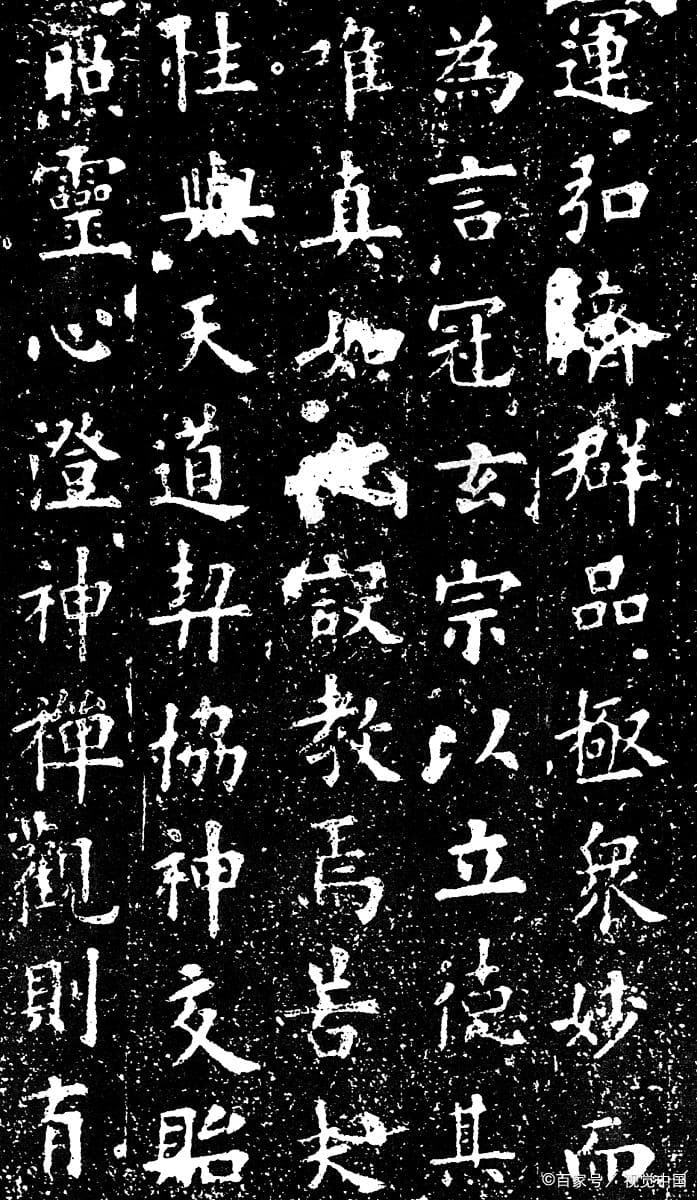 運弘濟群品極衆妙而
為言冠玄宗以立德其
唯真如設教焉若夫
性與天道契協神交貽
照靈心澄神禪觀則有
©百家号/视觉中国